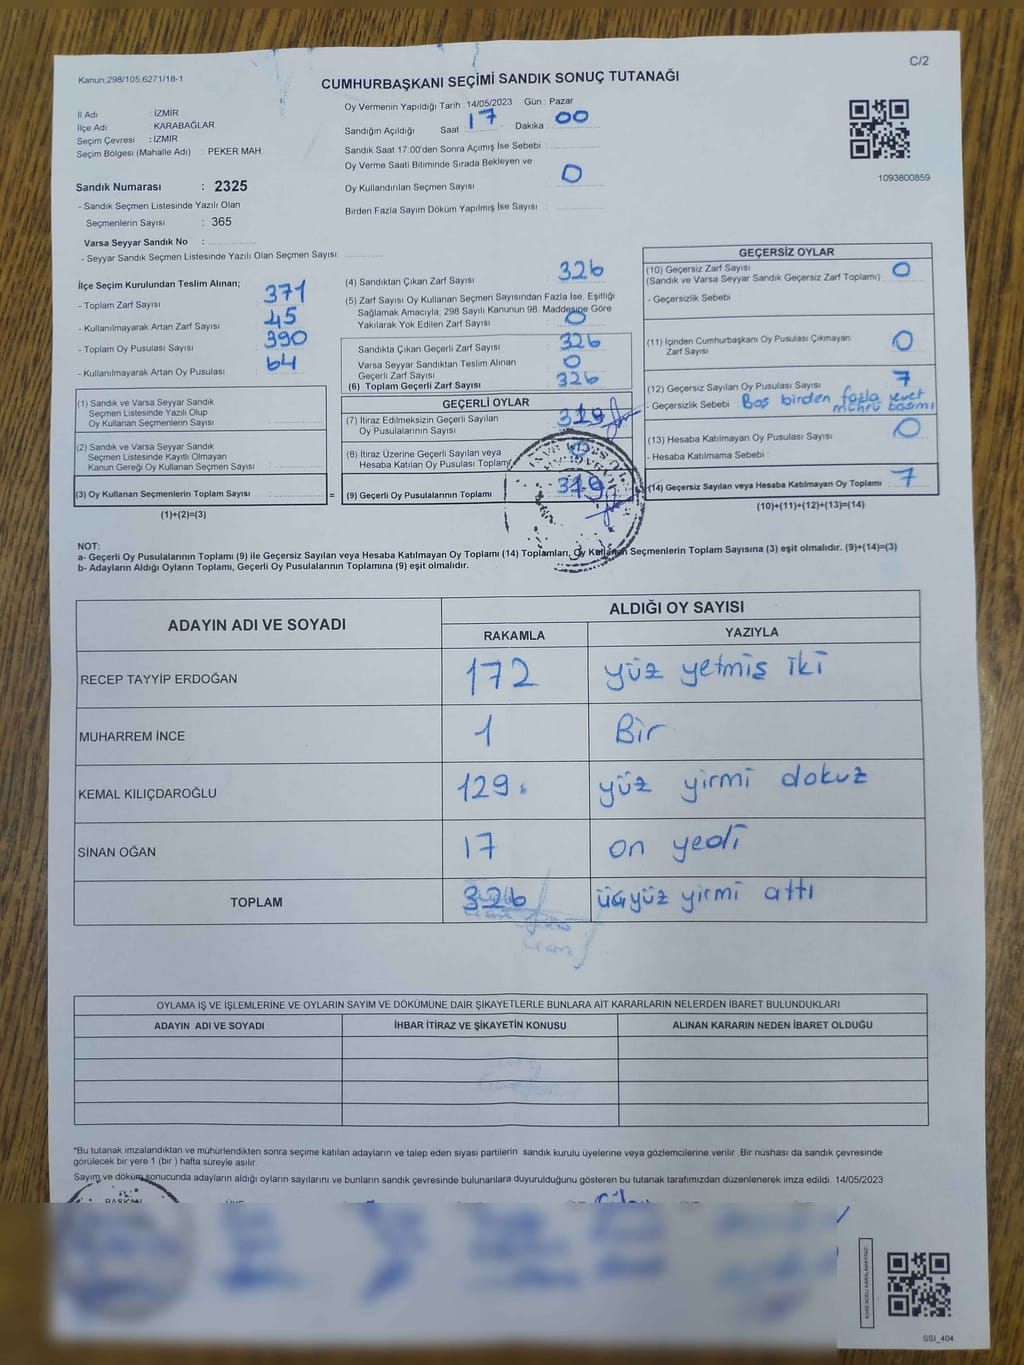 C/2
Kanun:298/105,6271/18-1
CUMHURBAŞKANI SEÇİMİ SANDIK SONUÇ TUTANAĞI
İl Adı : İZMİR
İlçe Adı : KARABAĞLAR
Seçim Çevresi : İZMİR
Seçim Bölgesi (Mahalle Adı) : PEKER MAH.
Sandık Numarası : 2325
- Sandık Seçmen Listesinde Yazılı Olan
Seçmenlerin Sayısı : 365
Varsa Seyyar Sandık No :
- Seyyar Sandık Seçmen Listesinde Yazılı Olan Seçmen Sayısı:
Oy Vermenin Yapıldığı Tarih : 14/05/2023 Gün : Pazar
Sandığın Açıldığı Saat 17 Dakika 00
Sandık Saat 17:00'den Sonra Açımış İse Sebebi :
Oy Verme Saati Bitiminde Sırada Bekleyen ve
Oy Kullandırılan Seçmen Sayısı 0
Birden Fazla Sayım Döküm Yapılmış İse Sayısı :
1093800859
İlçe Seçim Kurulundan Teslim Alınan;
- Toplam Zarf Sayısı 371
- Kullanılmayarak Artan Zarf Sayısı 45
- Toplam Oy Pusulası Sayısı 390
- Kullanılmayarak Artan Oy Pusulası 64
(1) Sandık ve Varsa Seyyar Sandık
Seçmen Listesinde Yazılı Olup
Oy Kullanan Seçmenlerin Sayısı
(2) Sandık ve Varsa Seyyar Sandık
Seçmen Listesinde Kayıtlı Olmayan
Kanun Gereği Oy Kullanan Seçmen Sayısı
(3) Oy Kullanan Seçmenlerin Toplam Sayısı =
(1)+(2)=(3)
(4) Sandıktan Çıkan Zarf Sayısı 326
(5) Zarf Sayısı Oy Kullanan Seçmen Sayısından Fazla İse, Eşitliği
Sağlamak Amacıyla, 298 Sayılı Kanunun 98. Maddesine Göre
Yakılarak Yok Edilen Zarf Sayısı 0
Sandıkta Çıkan Geçerli Zarf Sayısı 326
Varsa Seyyar Sandıktan Teslim Alınan
Geçerli Zarf Sayısı 0
(6) Toplam Geçerli Zarf Sayısı 326
GEÇERLİ OYLAR
(7) İtiraz Edilmeksizin Geçerli Sayılan
Oy Pusulalarının Sayısı 319
(8) İtiraz Üzerine Geçerli Sayılan veya
Hesaba Katılan Oy Pusulası Toplam
(9) Geçerli Oy Pusulalarının Toplamı 319
GEÇERSİZ OYLAR
(10) Geçersiz Zarf Sayısı
(Sandık ve Varsa Seyyar Sandık Geçersiz Zarf Toplamı) 0
- Geçersizlik Sebebi
(11) İçinden Cumhurbaşkanı Oy Pusulası Çıkmayan
Zarf Sayısı 0
(12) Geçersiz Sayılan Oy Pusulası Sayısı 7
- Geçersizlik Sebebi : Boş birden fazla evet
mührü basımı
(13) Hesaba Katılmayan Oy Pusulası Sayısı 0
- Hesaba Katılmama Sebebi :
(14) Geçersiz Sayılan veya Hesaba Katılmayan Oy Toplamı 7
(10)+(11)+(12)+(13)=(14)
NOT:
a- Geçerli Oy Pusulalarının Toplamı (9) ile Geçersiz Sayılan veya Hesaba Katılmayan Oy Toplamı (14) Toplamları, Oy Kullanan Seçmenlerin Toplam Sayısına (3) eşit olmalıdır. (9)+(14)=(3)
b- Adayların Aldığı Oyların Toplamı, Geçerli Oy Pusulalarının Toplamına (9) eşit olmalıdır.
ADAYIN ADI VE SOYADI ALDIĞI OY SAYISI
RAKAMLA YAZIYLA
RECEP TAYYİP ERDOĞAN 172 yüz yetmiş iki
MUHARREM İNCE 1 Bir
KEMAL KILIÇDAROĞLU 129 yüz yirmi dokuz
SİNAN OĞAN 17 on yedi
TOPLAM 326 üçyüz yirmi altı
OYLAMA İŞ VE İŞLEMLERİNE VE OYLARIN SAYIM VE DÖKÜMÜNE DAİR ŞİKAYETLERLE BUNLARA AİT KARARLARIN NELERDEN İBARET BULUNDUKLARI
ADAYIN ADI VE SOYADI İHBAR İTİRAZ VE ŞİKAYETİN KONUSU ALINAN KARARIN NEDEN İBARET OLDUĞU
*Bu tutanak imzalandıktan ve mühürlendikten sonra seçime katılan adayların ve talep eden siyasi partilerin sandık kurulu üyelerine veya gözlemcilerine verilir .Bir nüshası da sandık çevresinde
görülecek bir yere 1 (bir ) hafta süreyle asılır.
Sayım ve döküm sonucunda adayların aldığı oyların sayılarını ve bunların sandık çevresinde bulunanlara duyurulduğunu gösteren bu tutanak tarafımızdan düzenlenerek imza edildi. 14/05/2023
BAŞKAN
SSI_404